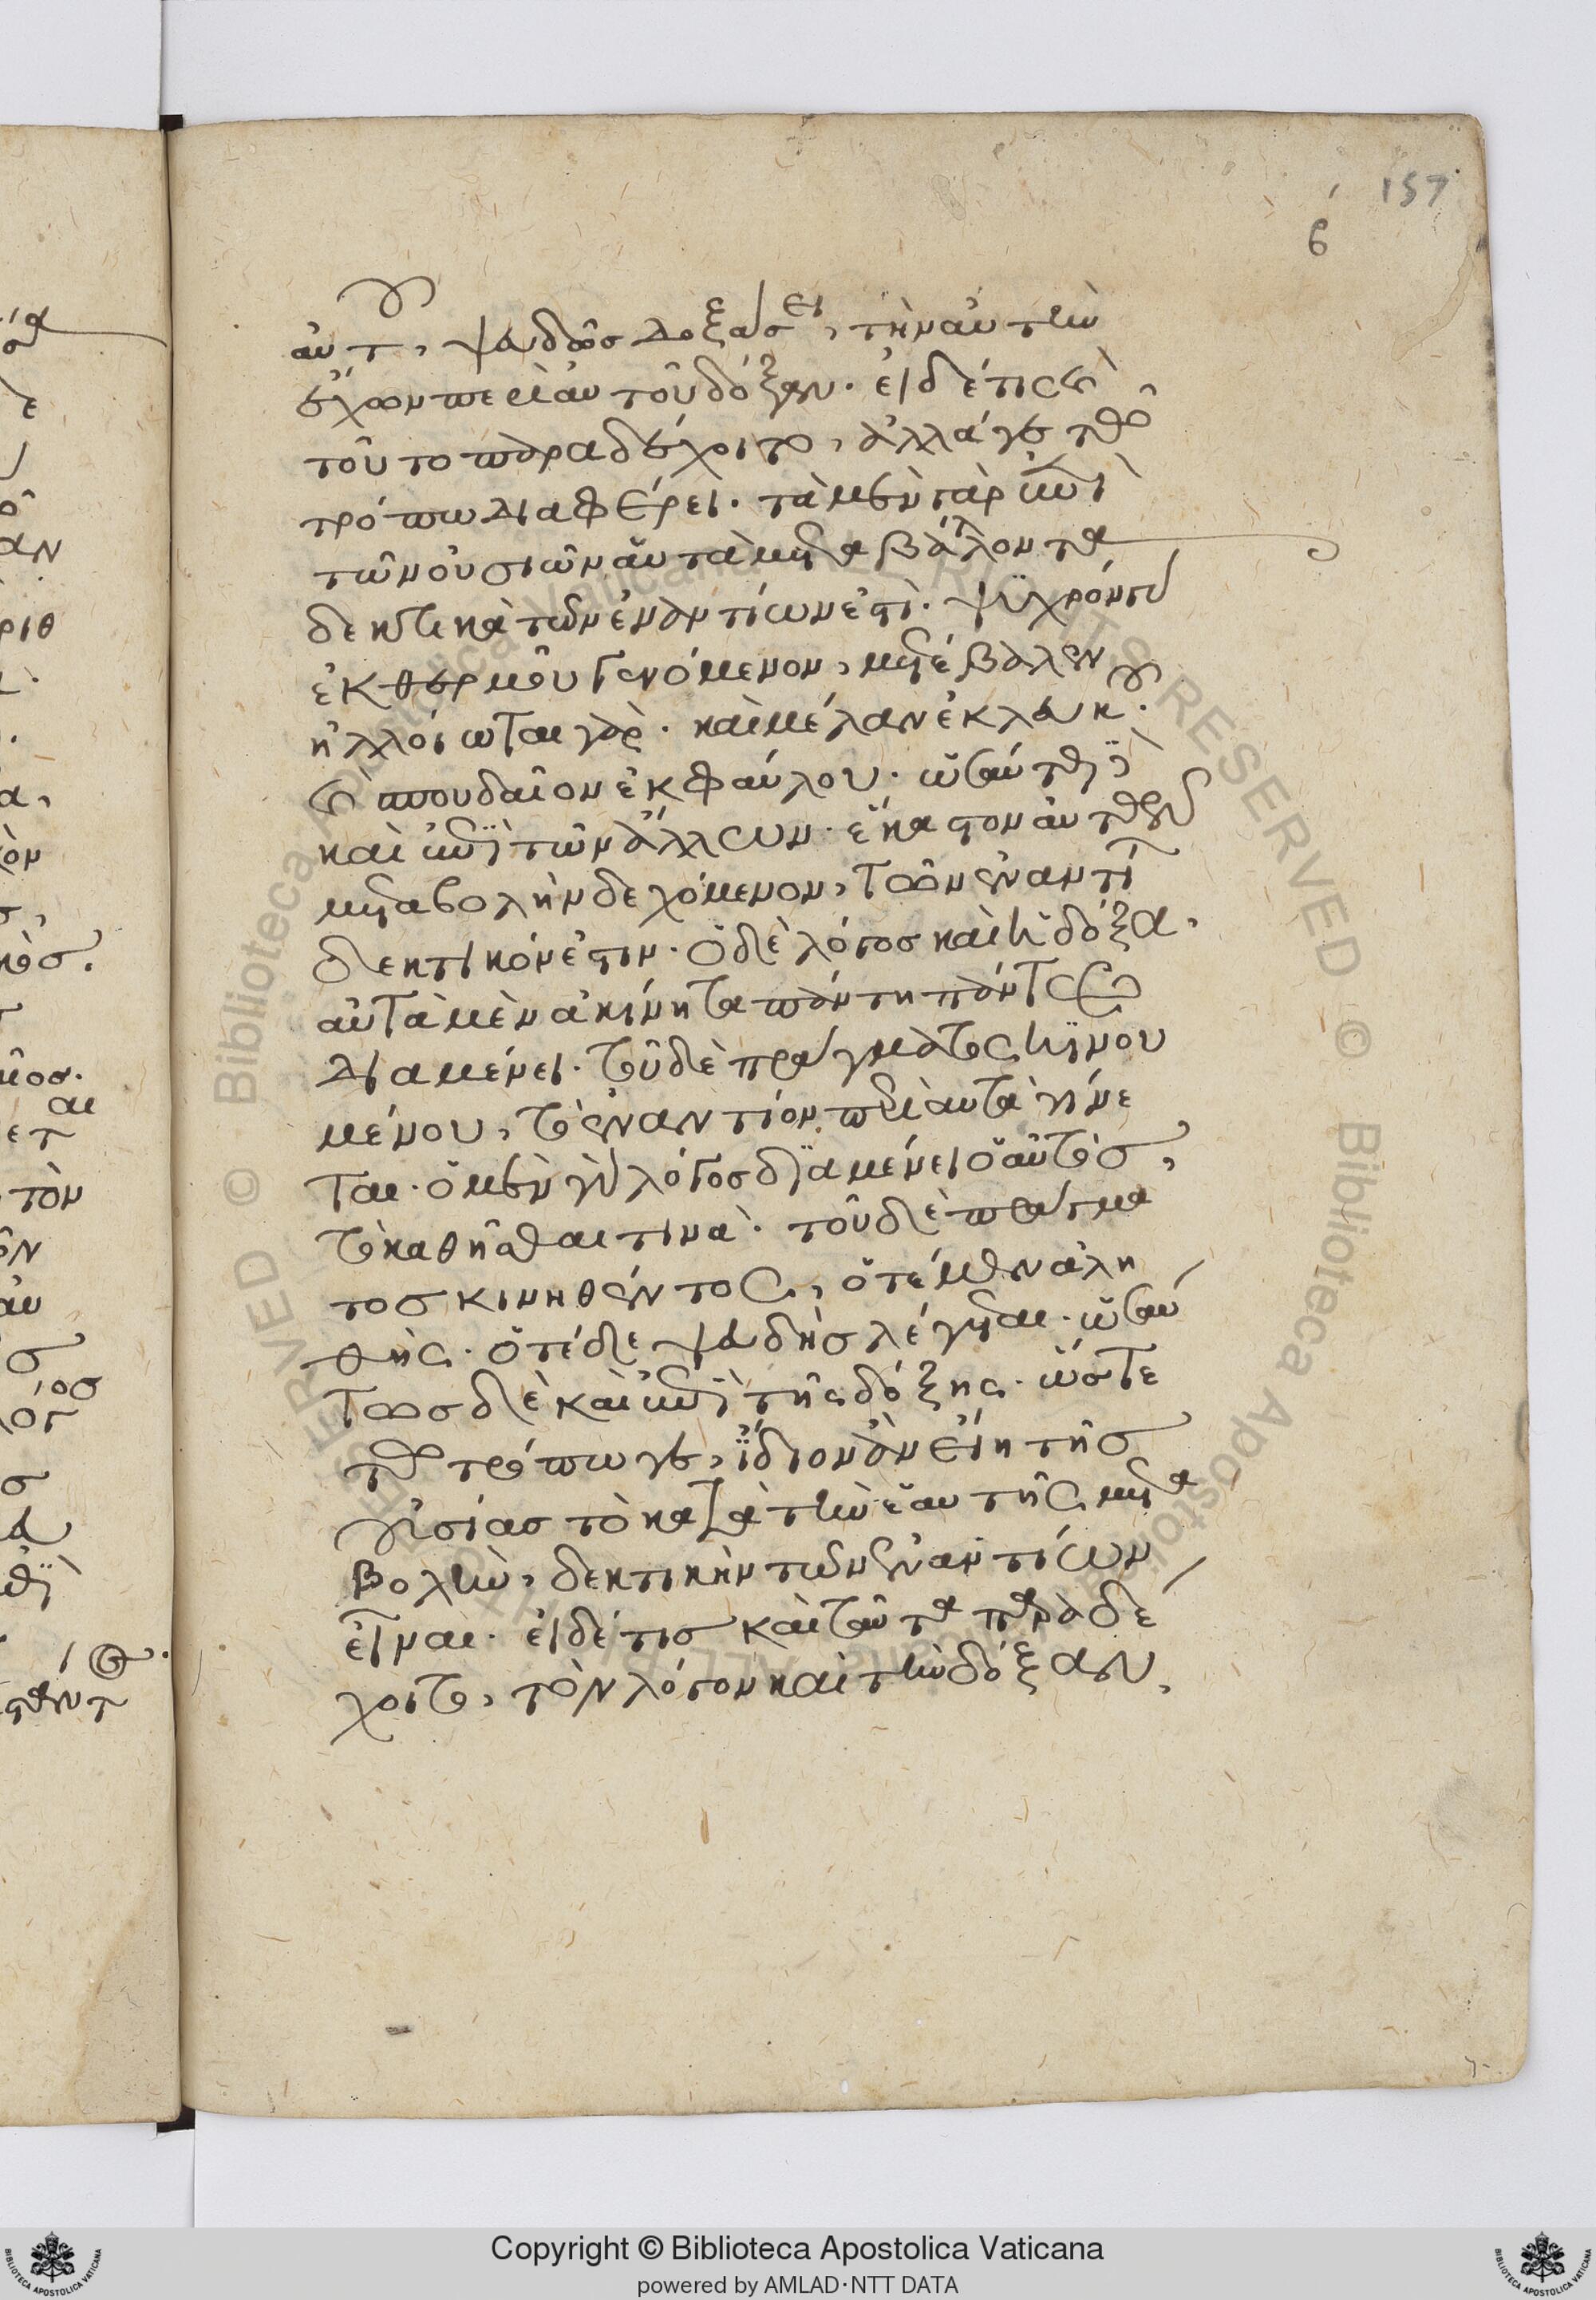 157
6
αὐτοῦ, ψευδῶς δοξάσει, τὴν αὐτὴν
ἔχων περὶ αὐτοῦ δόξαν. εἰ δέ τις καὶ
τοῦτο παραδέχοιτο, ἀλλά γε τῶ
τρόπω διαφέρει. τὰ μὲν γὰρ ἐπὶ
τῶν οὐσιῶν αὐτὰ μεταβάλλοντα
δεκτικὰ τῶν ἐναντίων ἐστί. ψυχρὸν γὰρ
ἐκ θερμοῦ γενόμενον, μετέβαλεν
ἠλλοίωται γάρ. καὶ μέλαν ἐκ λευκοῦ.
καὶ σπουδαῖον ἐκ φαύλου. ὡσαύτως
καὶ ἐπὶ τῶν ἄλλων. ἕκαστον αὐτῶν
μεταβολὴν δεχόμενον, τῶν ἐναντίων
δεκτικόν ἐστιν. ὁ δὲ λόγος καὶ ἡ δόξα.
αὐτὰ μὲν ἀκίνητα πάντη πάντως
διαμένει. τοῦ δὲ πράγματος κινου
μένου, τὸ ἐναντίον περὶ αὐτὰ γίνε
ται. ὁ μὲν γὰρ λόγος διαμένει ὁ αὐτός,
τὸ καθῆσθαι τινά. τοῦ δὲ πράγμα
τος κινηθέντος, ὁτὲ μὲν ἀλη
θής. ὁτὲ δὲ ψευδὴς λέγεται. ὡσαύ
τως δὲ καὶ ἐπὶ τῆς δόξης. ὥστε
τῶ τρόπω γε, ἴδιον ἂν εἴη τῆς
οὐσίας τὸ κατὰ τὴν ἑαυτῆς μετα
βολὴν, δεκτικὴν τῶν ἐναντίων
εἶναι. εἰ δέ τις καὶ ταῦτα παραδέ
χοιτο, τὸν λόγον καὶ τὴν δόξαν,
Copyright © Biblioteca Apostolica Vaticana
powered by AMLAD·NTT DATA